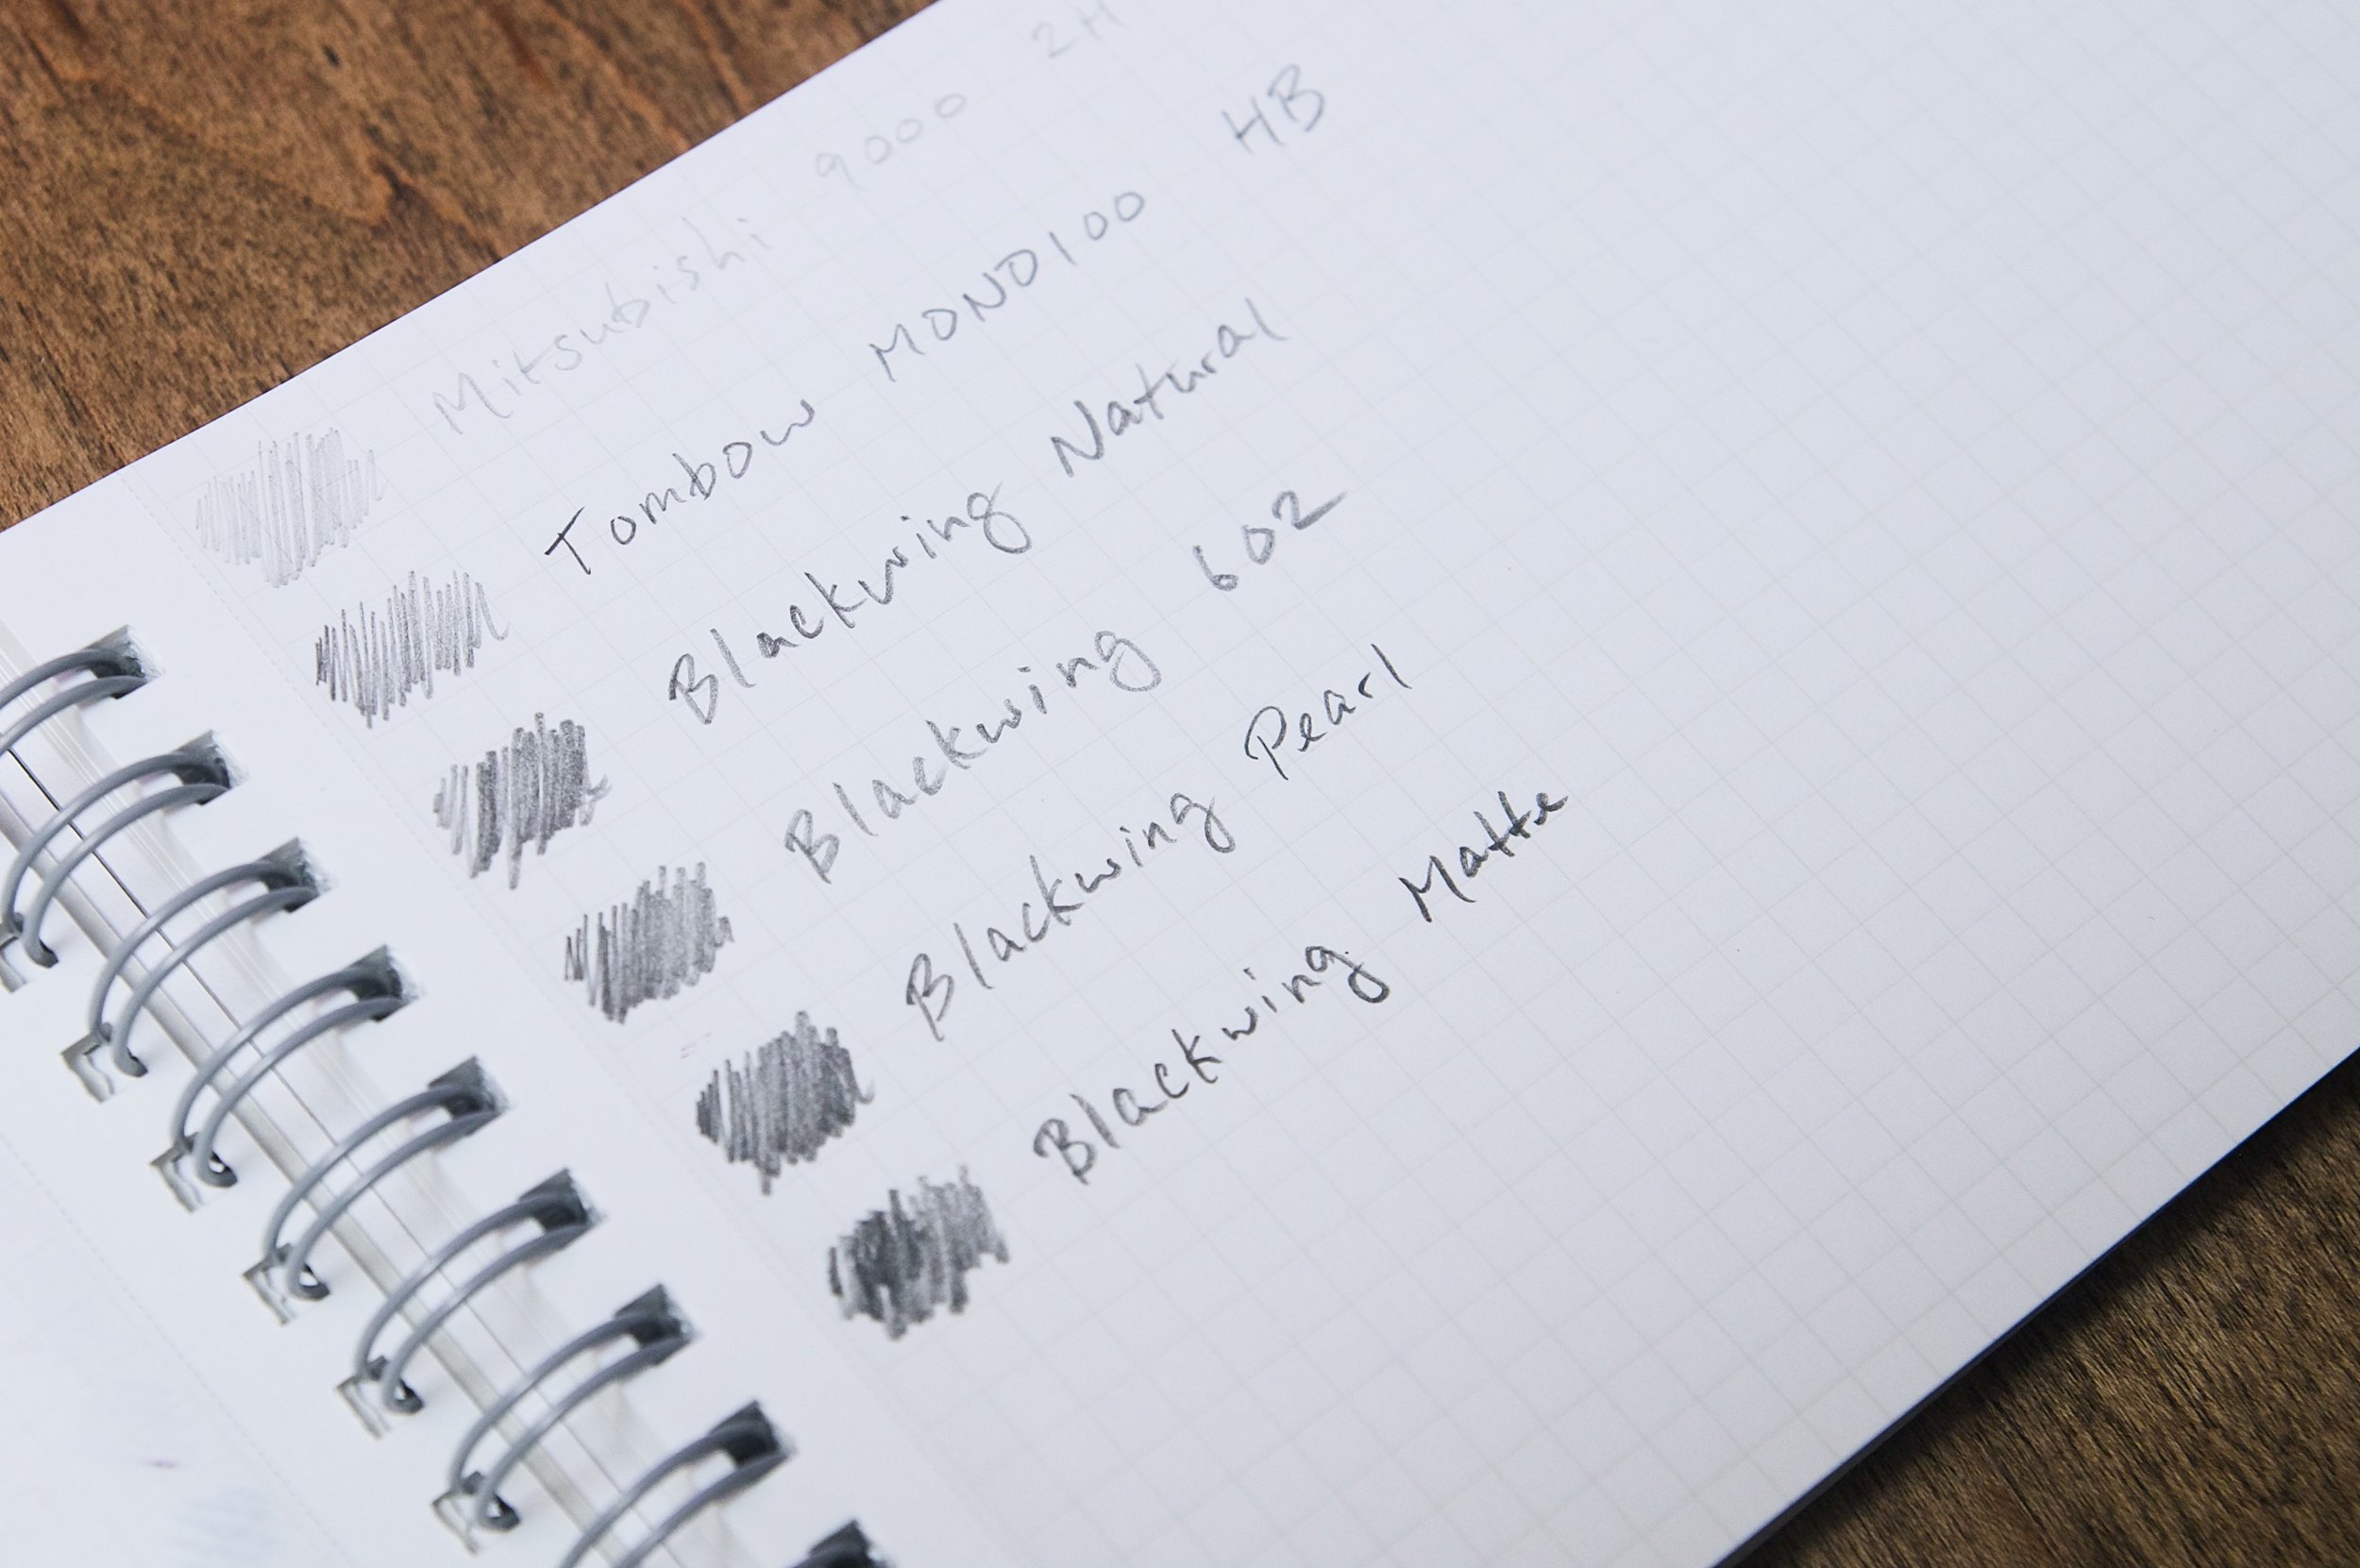 Mitsubishi 9000 2H
Tombow MONO100 HB
Blackwing Natural
Blackwing 602
Blackwing Pearl
Blackwing Matte